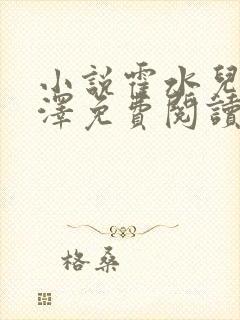 小說霍水兒
澤免費閱讀
格桑